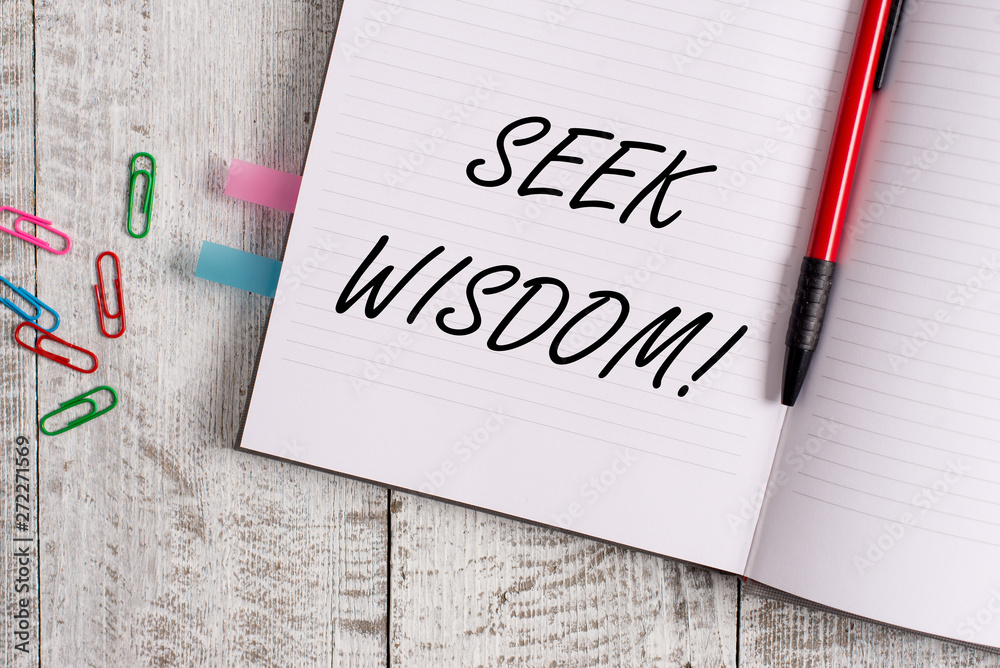 SEEK
WISDOM!
Adobe Stock | #272271569